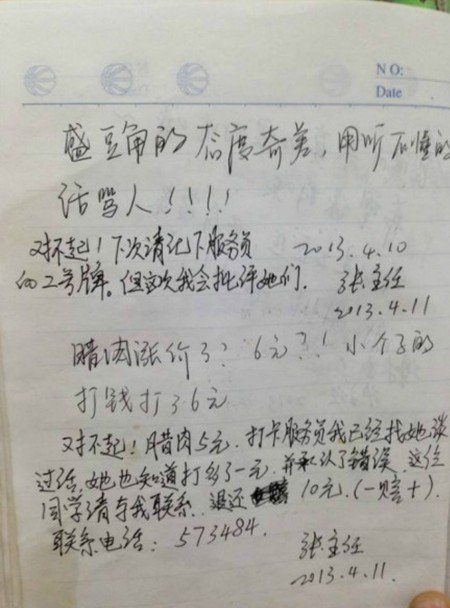 NO:
Date
盛豆角的态度奇差,用听不懂的
话骂人!!!!
2013.4.10
对不起!下次请记下服务员
的工号牌。但这次我会批评她们.
张主任
2013.4.11
腊肉涨价了? 6元?! 小个子的
打钱打了6元
对不起!腊肉5元.打卡服务员我已经找她谈
过话,她也知道打多了一元.并承认了错误.这位
同学请与我联系.退还 10元.(一赔十).
联系电话:573484.
张主任
2013.4.11.